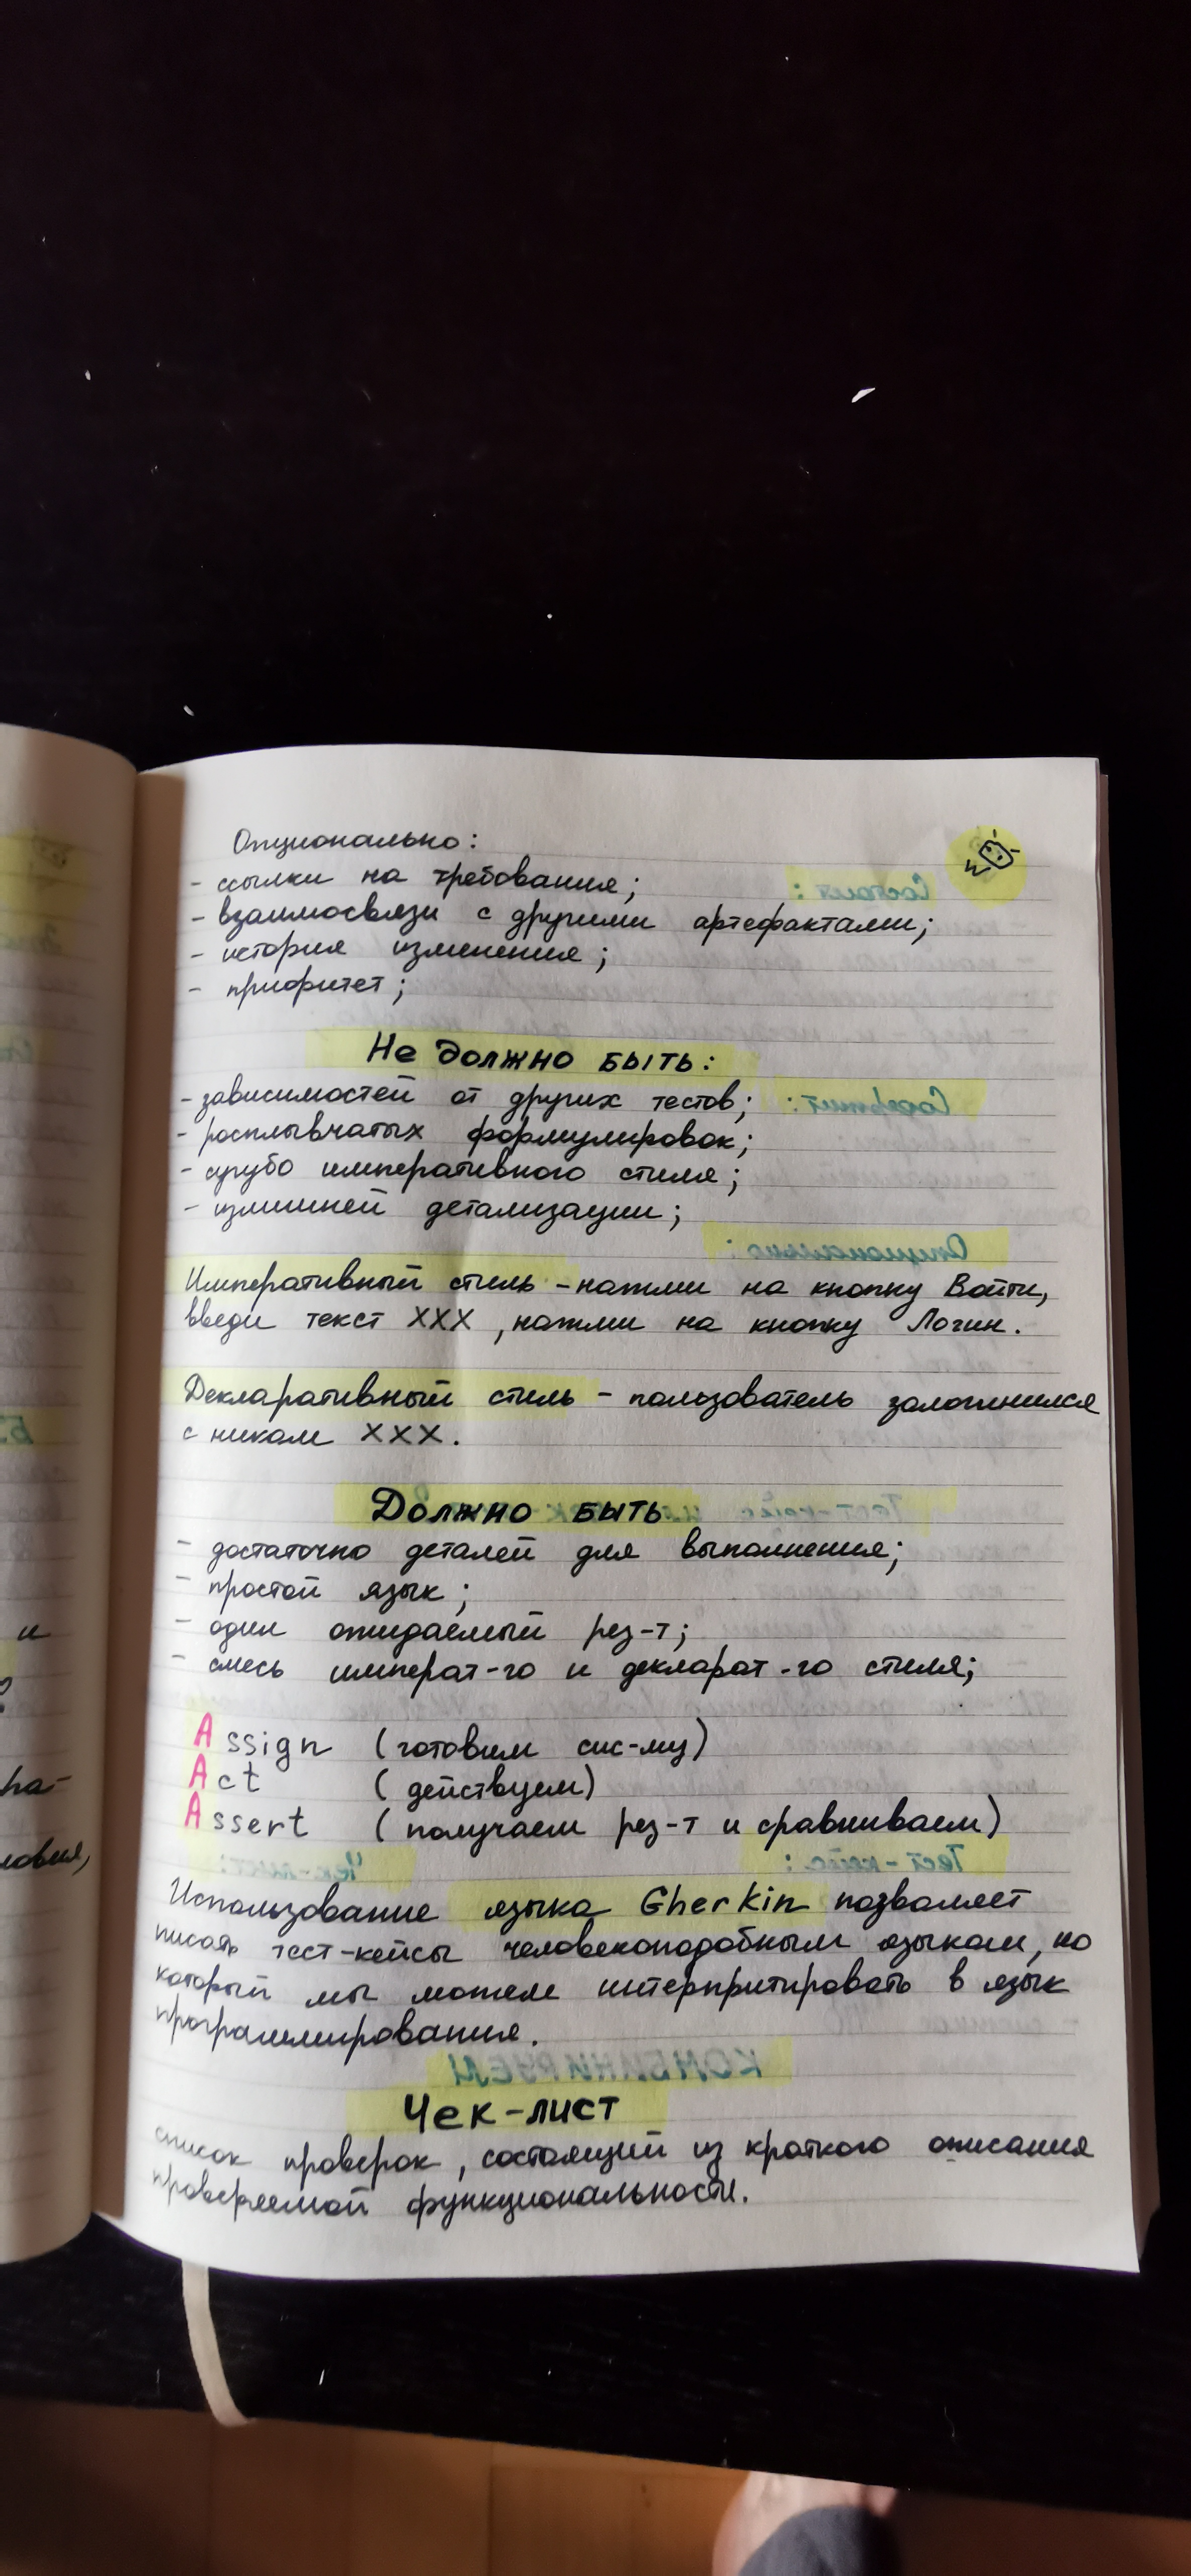 Опционально:
- ссылки на требования;
- взаимосвязи с другими артефактами;
- история изменения;
- приоритет;
Не должно быть:
- зависимостей от других тестов;
- расплывчатых формулировок;
- сугубо императивного стиля;
- излишней детализации;
Императивный стиль - нажми на кнопку Войти,
введи текст XXX, нажми на кнопку Логин.
Декларативный стиль - пользователь залогинился
с ником XXX.
Должно быть
- достаточно деталей для выполнения;
- простой язык;
- один ожидаемый рез-т;
- смесь императ-го и декларат-го стиля;
Assign (готовим сис-му)
Act (действуем)
Assert (получаем рез-т и сравниваем)
Использование языка Gherkin позволяет
писать тест-кейсы человекоподобным языком, но
который мы можем интерпритировать в язык
программирования.
Чек-лист
список проверок, состоящий из краткого описания
проверяемой функциональности.